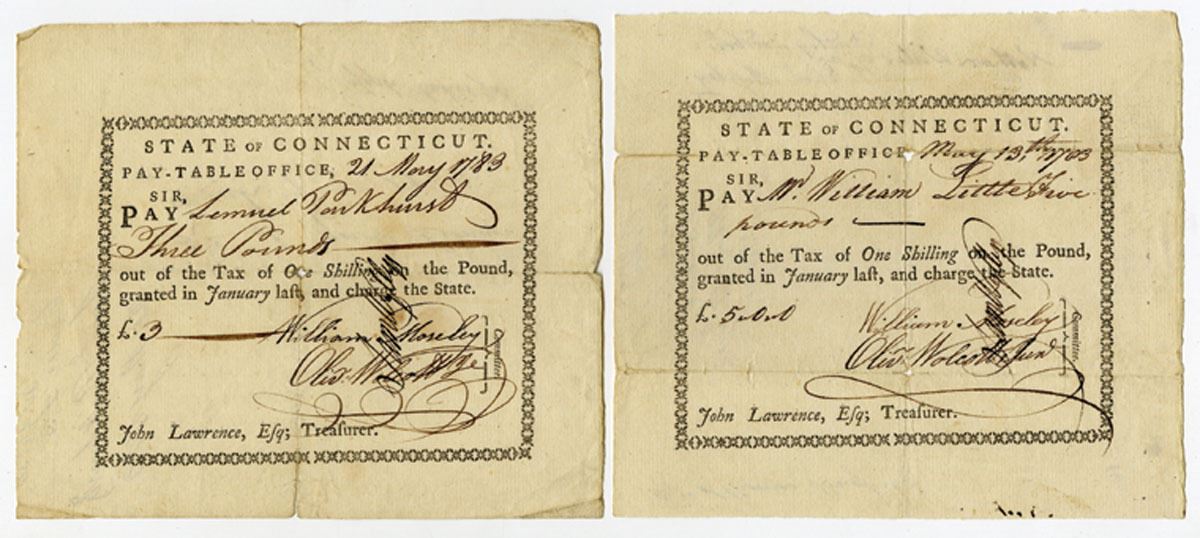 STATE OF CONNECTICUT.
PAY-TABLE OFFICE, 21 May 1783
SIR,
PAY Lemuel Parkhurst
Three Pounds
out of the Tax of One Shilling on the Pound,
granted in January laſt, and charge the State.
£. 3
William Moseley
Olivr. Wolcott
Committee
John Lawrence, Eſq; Treaſurer.
STATE OF CONNECTICUT.
PAY-TABLE OFFICE, May 13th. 1783
SIR,
PAY Mr. William Little Five
pounds
out of the Tax of One Shilling on the Pound,
granted in January laſt, and charge the State.
£. 5.0.0
William Moseley
Olivr. Wolcott Junr
Committee
John Lawrence, Eſq; Treaſurer.